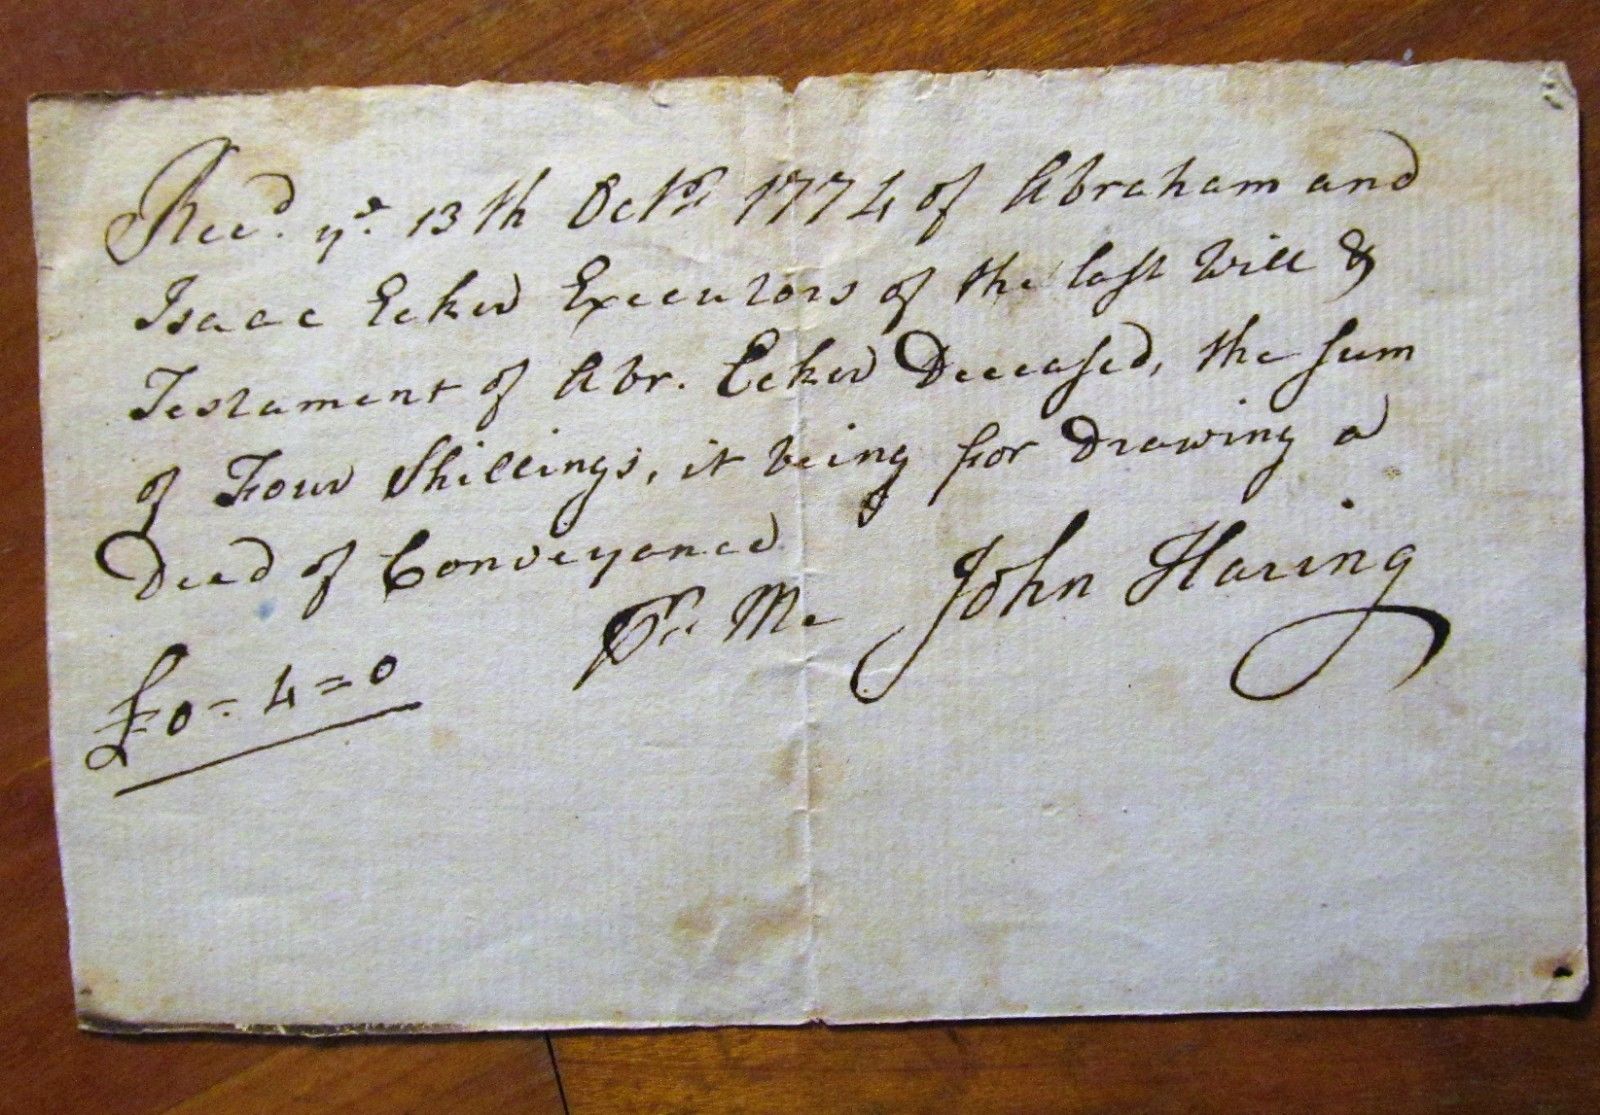 Rec.d y.e 13th Octbr 1774 of Abraham and
Isaac Ecker Executors of the last Will &
Testament of Abr. Ecker Deceased, the sum
of Four Shillings, it being for Drawing a
Deed of Conveyance
Pr. Me John Haring
£0-4=0